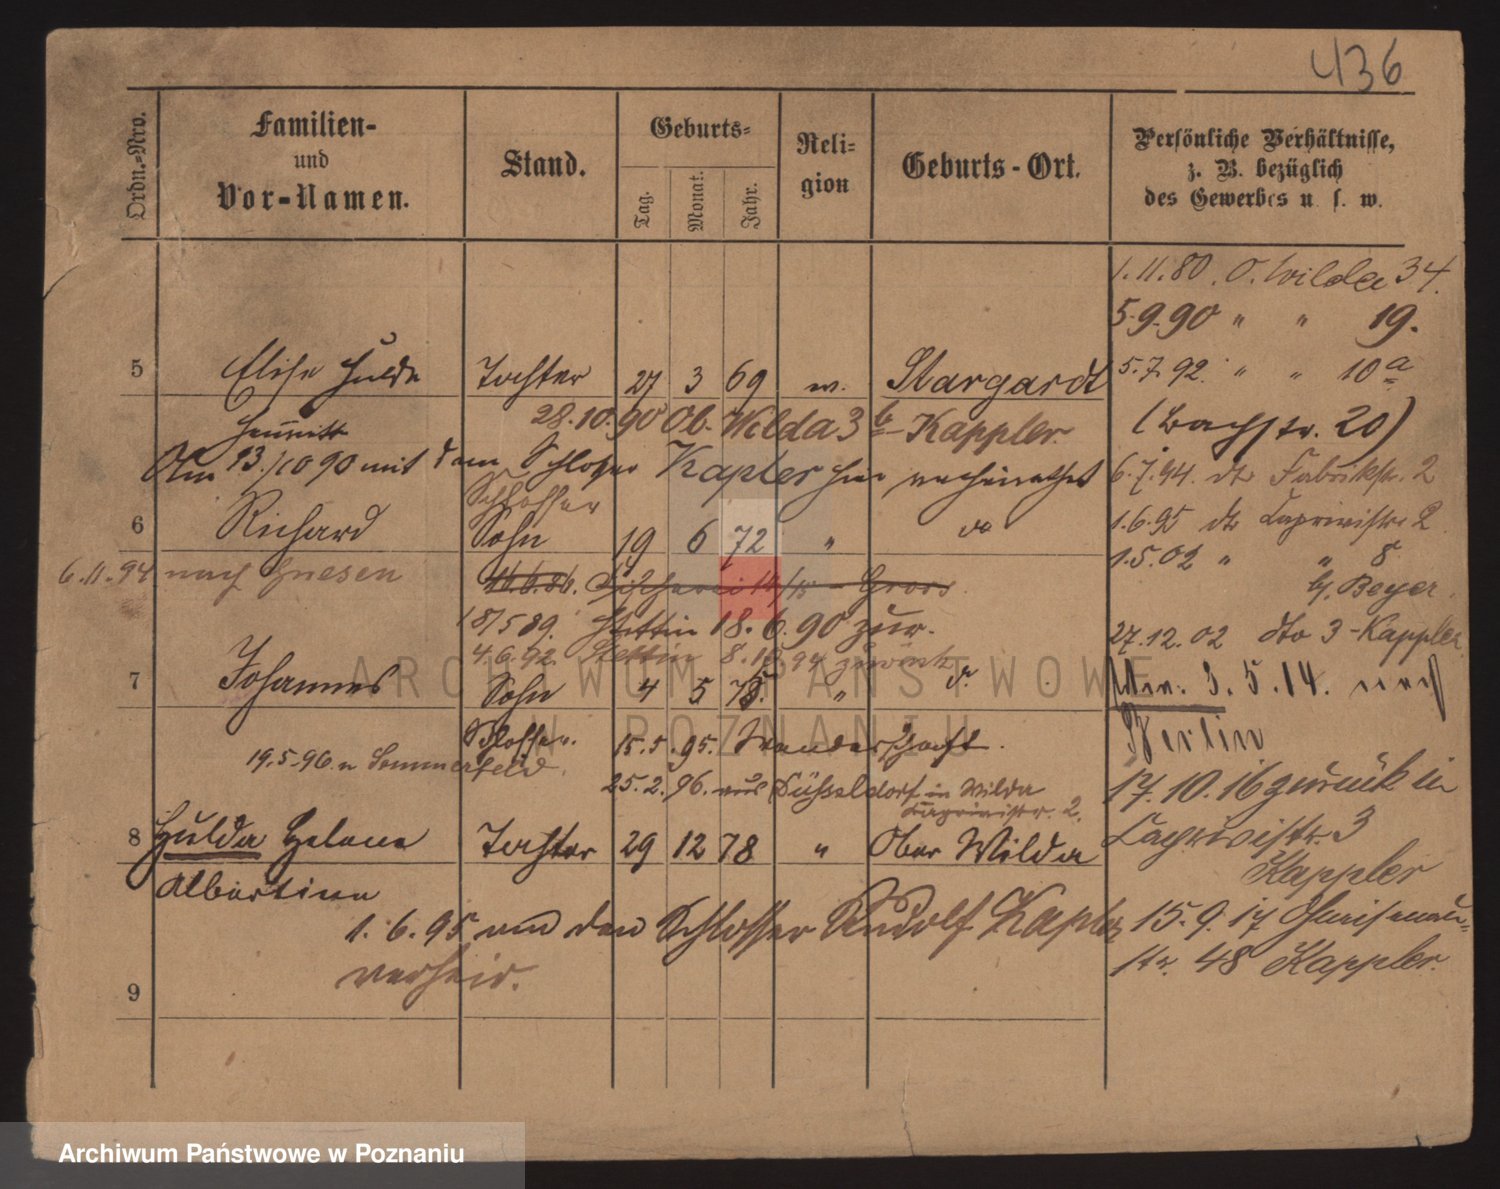 436
Ordn.-Nro.
Familien-
und
Vor-Namen.
Stand.
Geburts-
Tag.
Monat.
Jahr.
Reli-
gion
Geburts-Ort.
Persönliche Verhältnisse,
z. B. bezüglich
des Gewerbes u. s. w.
1.11.80. O. Wilda 34.
5.9.90 " " 19.
5 Elise Hulda Tochter 27 3 69 w. Stargardt
5.7.92. " " 10 a
28.10.90 Ob. Wilda 3 b - Kappler
(Bachstr. 20)
Am 13./10 90 mit dem Schlosser Kapler hier verheirathet
6.7.94. dto Fabrikstr. 2
Schlosser
6 Richard Sohn 19 6 72 " do
1.6.95 dto Caprivistr. 2
6.11.94 nach Gnesen
16.6.86. Fischerei 14/15 - Gross
1.5.02 " " 8
b/ Beyer
18/5 89. Stettin 18.6.90 zur.
27.12.02 dto 3 - Kappler
4.6.92. Stettin 8.10.94 zurück
7 Johannes Sohn 4 5 75. " do
3.5.14. nach
Berlin
Schlosser. 15.5.95. Wanderschaft.
19.5.96. n Sommerfeld.
25.2.96. aus Düsseldorf in Wilda
Caprivistr. 2.
17.10.16 zurück in
Caprivistr. 3
Kappler
8 Hulda Helene Tochter 29 12 78 " Ober Wilda
Albertine
1.6.95 an den Schlosser Rudolf Kapler
verheir.
15.9.17 Gneisenau-
str. 48 Kappler.
9
ARCHIWUM PAŃSTWOWE
W POZNANIU
Archiwum Państwowe w Poznaniu